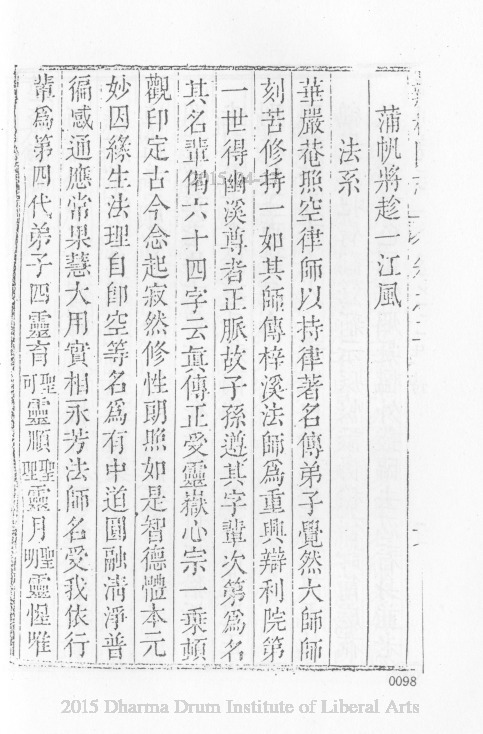 蒲帆將趁一江風
法系
華嚴菴照空律師以持律著名傳弟子覺然大師師
刻苦修持一如其師傳梓溪法師為重興辯利院第
一世得幽溪尊者正脈故子孫遵其字輩次第為名
其名輩偈六十四字云眞傳正受靈嶽心宗一乗頓
觀印定古今念起寂然修性朗照如是智德體本元
妙因緣生法理自卽空等名為有中道圓融清淨普
徧感通應常果慧大用實相永芳法師名受我依行
輩爲第四代弟子四靈育聖可靈順聖聖靈月聖明靈惺唯
0098
2015 Dharma Drum Institute of Liberal Arts